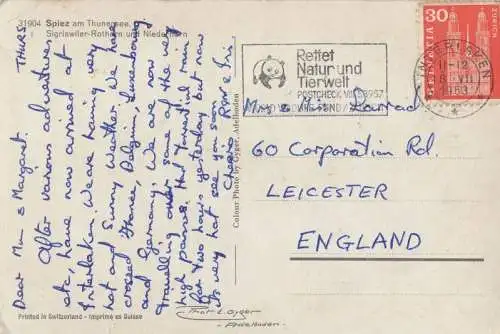 31904 Spiez am Thunersee.
Sigriswiler-Rothorn und Niederhorn
THURS.
Dear Mum & Margaret.
After various adventures
etc, have now arrived at
Interlaken. We are having very
hot and Sunny Weather. We have
crossed France, Belgium, Luxembourg
and Germany. We are now
travelling over some of the very
high passes. Had torrential rain
for two hours yesterday but now
its very hot. see you soon
Cheers
Printed in Switzerland - Imprimé en Suisse
Colour Photo by Gyger, Adelboden
Phot. E. Gyger
Adelboden.
Rettet
Natur und
Tierwelt
POSTCHECK VIII 58957
WORLD WILDLIFE FUND
INTERLAKEN
11-12
8.VII
1963
30
HELVETIA
ZÜRICH
Mrs & Miss
60 Corporation Rd.
LEICESTER
ENGLAND